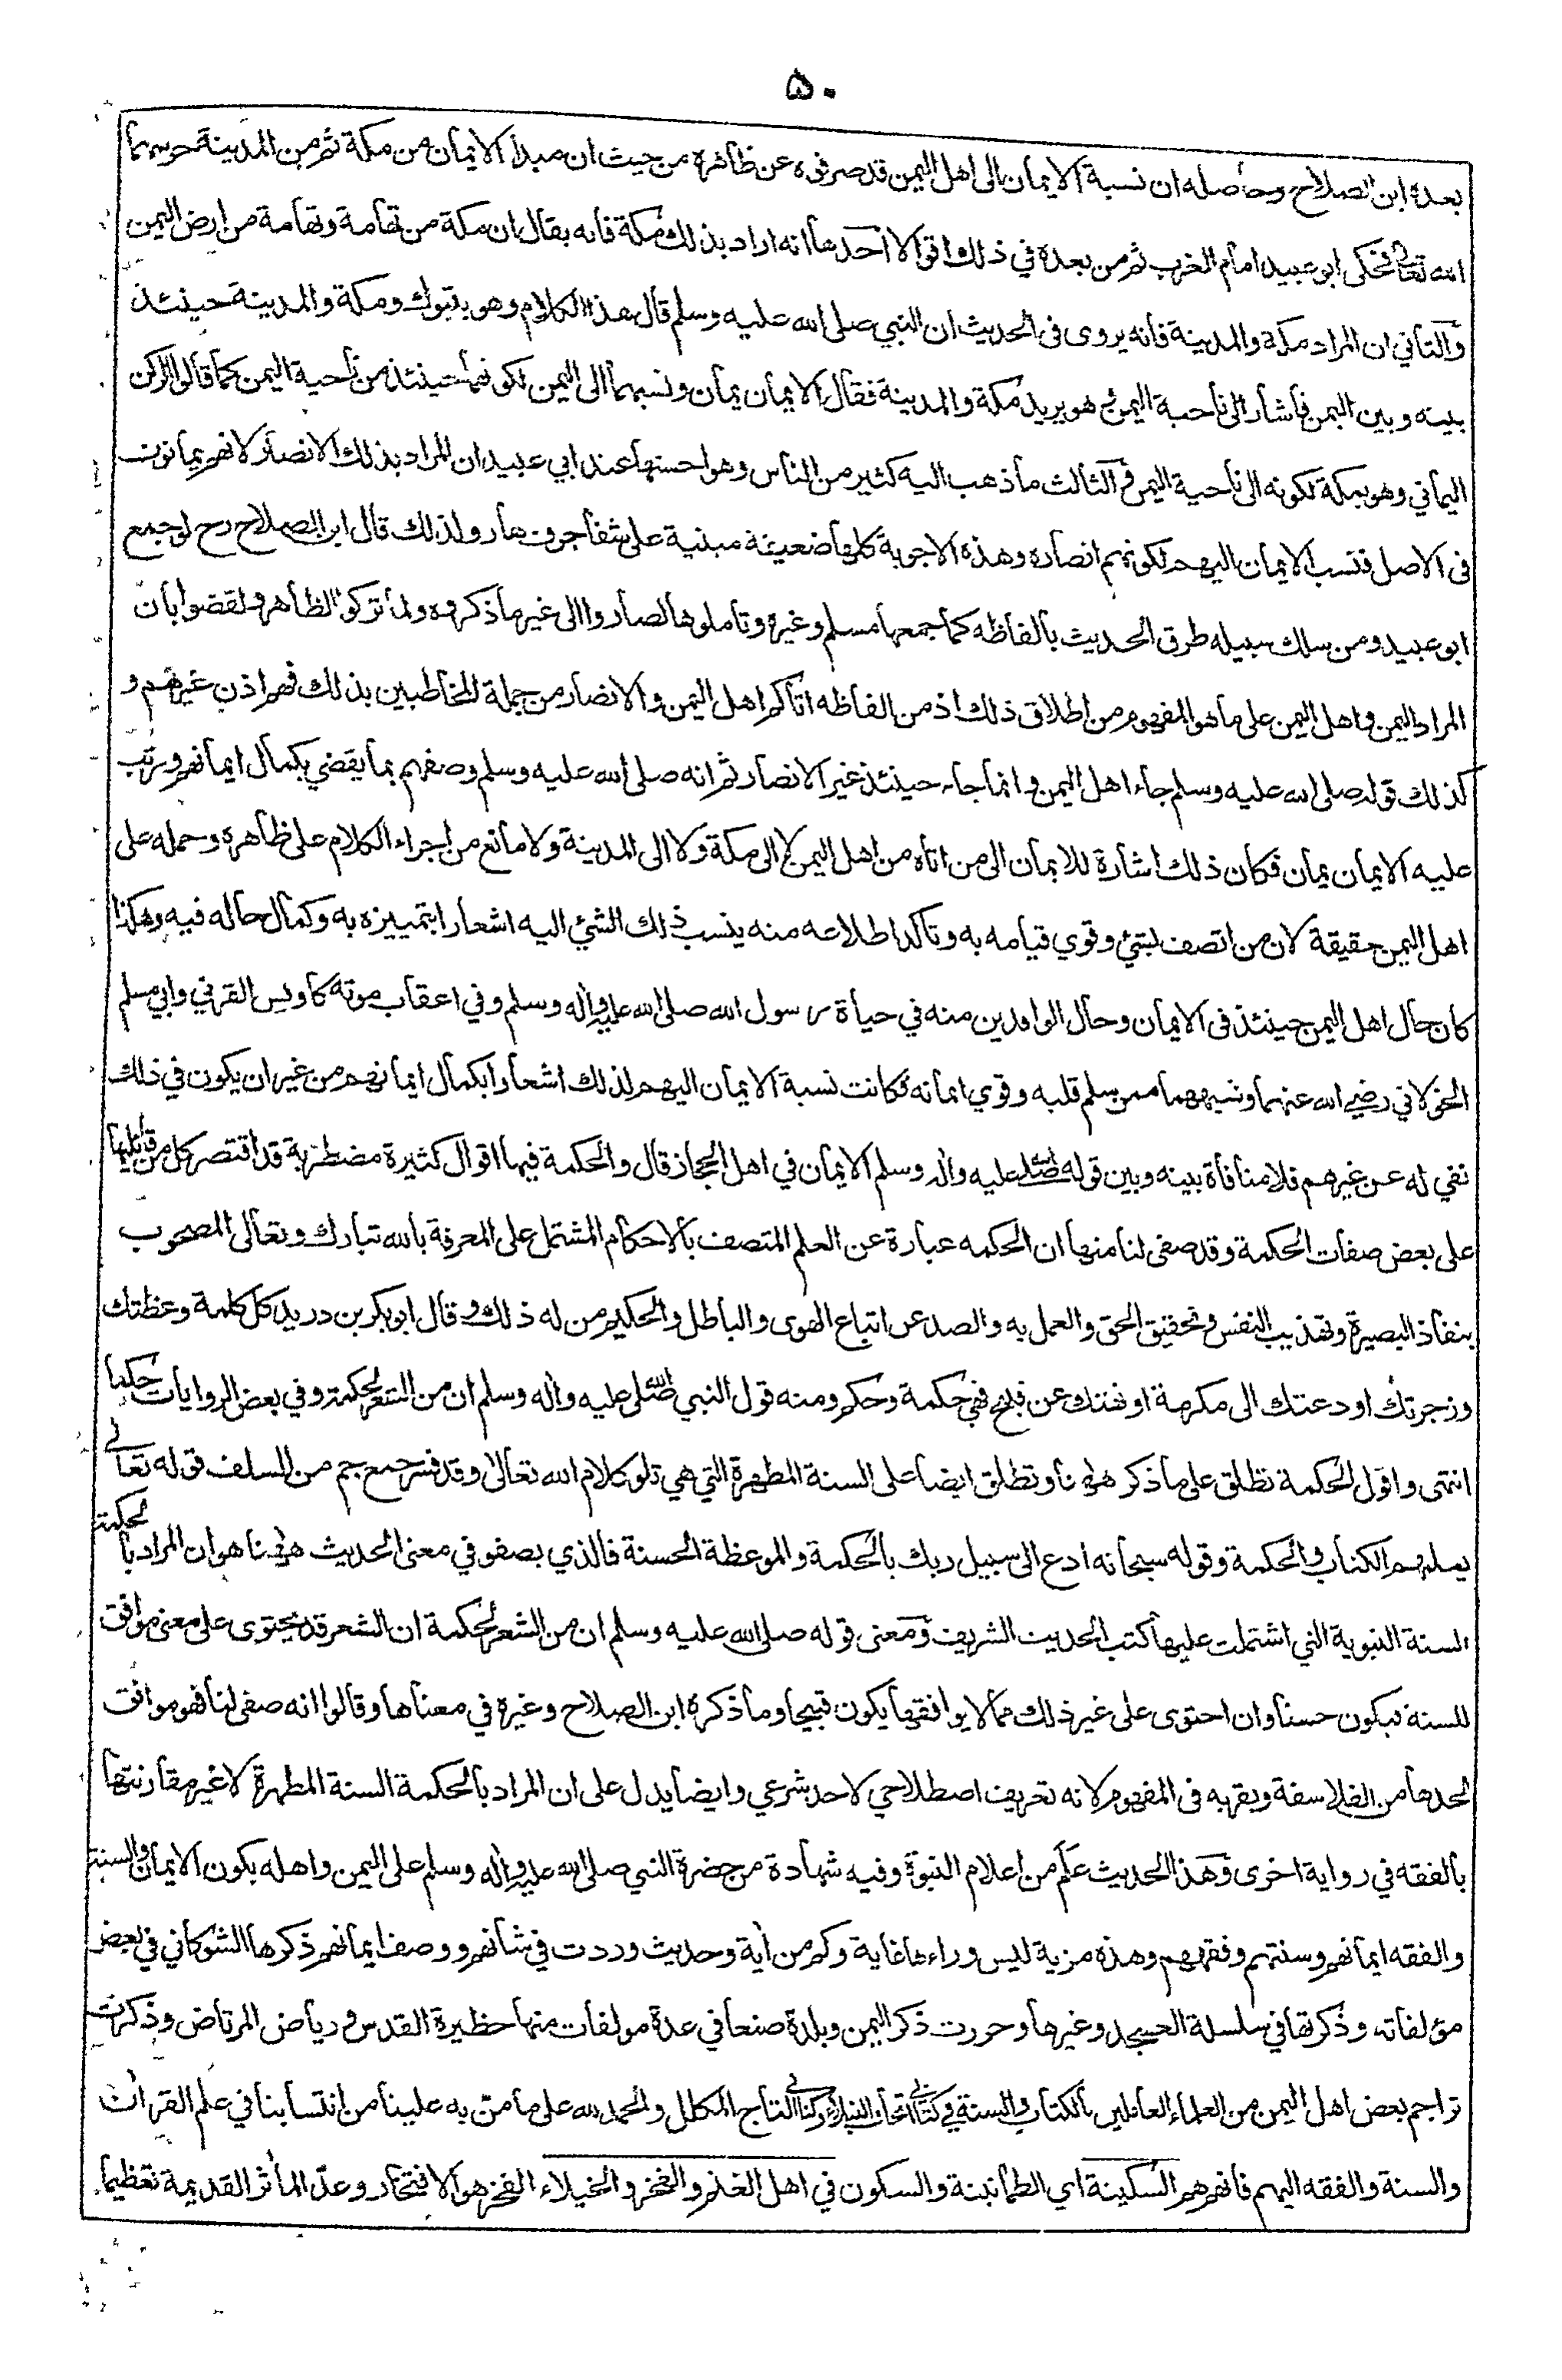 ۵۰
بعده ابن الصلاح وحاصله ان نسبة الايمان الى اهل اليمن قد صرفوه عن ظاهره من حيث ان مبدأ الايمان من مكة ثم من المدينة حرسهما
الله تعالى فحكى ابو عبيد امام الغرب ثم من بعده في ذلك اقوالا احدها انه اراد بذلك مكة فانه يقال ان مكة من تهامة وتهامة من ارض اليمن
والثاني ان المراد مكة والمدينة فانه يروى فى الحديث ان النبي صلى الله عليه وسلم قال هذا الكلام وهو بتبوك ومكة والمدينة حينئذ
بينه وبين اليمن فاشار الى ناحية اليمن وهو يريد مكة والمدينة فقال الايمان يمان ونسبهما الى اليمن لكونهما حينئذ من ناحية اليمن كما قالوا الركن
اليماني وهو بمكة لكونه الى ناحية اليمن والثالث ما ذهب اليه كثير من الناس وهو احسنها عند ابي عبيد ان المراد بذلك الانصار لانهم يمانون
فى الاصل فنسب الايمان اليهم لكونهم انصاره وهذه الاجوبة كلها ضعيفة مبنية على شفا جرف هار ولذلك قال ابن الصلاح رح لو جمع
ابو عبيد ومن سلك سبيله طرق الحديث بالفاظه كما جمعها مسلم وغيره وتأملوها لصاروا الى غير ما ذكروه ولما تركوا الظاهر ولقضوا بان
المراد اليمن واهل اليمن على ما هو المفهوم من اطلاق ذلك اذ من الفاظه اتاكم اهل اليمن والانصار من جملة المخاطبين بذلك فهم اذن غيرهم و
كذلك قوله صلى الله عليه وسلم جاء اهل اليمن وانما جاء حينئذ غير الانصار ثم انه صلى الله عليه وسلم وصفهم بما يقضي بكمال ايمانهم ورتب
عليه الايمان يمان فكان ذلك اشارة للايمان الى من اتاه من اهل اليمن لا الى مكة ولا الى المدينة ولا مانع من اجراء الكلام على ظاهره وحمله على
اهل اليمن حقيقة لان من اتصف بشئ وقوي قيامه به وتأكد اطلاعه منه ينسب ذلك الشئ اليه اشعارا بتمييزه به وكمال حاله فيه وهكذا
كان حال اهل اليمن حينئذ فى الايمان وحال الوافدين منه في حياة رسول الله صلى الله عليه واله وسلم وفي اعقاب موته كاويس القرني وابي مسلم
الخولاني رضي الله عنهما وشبههما ممن سلم قلبه وقوي ايمانه فكانت نسبة الايمان اليهم لذلك اشعارا بكمال ايمانهم من غير ان يكون في ذلك
نفي له عن غيرهم فلا منافاة بينه وبين قوله صلى الله عليه واله وسلم الايمان في اهل الحجاز قال والحكمة فيها اقوال كثيرة مضطربة قد اقتصر كل من قائليها
على بعض صفات الحكمة وقد صفى لنا منها ان الحكمه عبارة عن العلم المتصف بالاحكام المشتمل على المعرفة بالله تبارك وتعالى المصحوب
بنفاذ البصيرة وتهذيب النفس وتحقيق الحق والعمل به والصد عن اتباع الهوى والباطل والحكيم من له ذلك وقال ابو بكر بن دريد كل كلمة وعظتك
وزجرتك او دعتك الى مكرمة او نهتك عن قبيح فهي حكمة وحكم ومنه قول النبي صلى الله عليه واله وسلم ان من الشعر لحكمة وفي بعض الروايات حكما
انتهى واقول الحكمة تطلق على ما ذكر ههنا وتطلق ايضا على السنة المطهرة التي هي تلو كلام الله تعالى وقد فسر جمع جم من السلف قوله تعالى
يعلمهم الكتاب والحكمة وقوله سبحانه ادع الى سبيل ربك بالحكمة والموعظة الحسنة فالذي يصفو في معنى الحديث ههنا هو ان المراد بالحكمة
السنة النبوية التي اشتملت عليها كتب الحديث الشريف ومعنى قوله صلى الله عليه وسلم ان من الشعر لحكمة ان الشعر قد يحتوى على معنى موافق
للسنة فيكون حسنا وان احتوى على غير ذلك مما لا يوافقها يكون قبيحا وما ذكره ابن الصلاح وغيره في معناها وقالوا انه صفى لنا فهو موافق
لحدها من الفلاسفة ويقربه فى المفهوم لانه تعريف اصطلاحي لا حد شرعي وايضا يدل على ان المراد بالحكمة السنة المطهرة لا غير مقارنتها
بالفقه في رواية اخرى وهذا الحديث علم من اعلام النبوة وفيه شهادة من حضرة النبي صلى الله عليه واله وسلم على اليمن واهله بكون الايمان والسنة
والفقه ايمانهم وسنتهم وفقههم وهذه مزية ليس وراءها غاية وكم من اية وحديث وردت في شانهم ووصف ايمانهم ذكرها الشوكاني في بعض
مؤلفاته وذكرتها في سلسلة العسجد وغيرها وحررت ذكر اليمن وبلدة صنعا في عدة مولفات منها حظيرة القدس ورياض المرتاض وذكرت
تراجم بعض اهل اليمن من العلماء العاملين بالكتاب والسنة في كتابي اتحاف النبلاء وكتابي التاج المكلل والحمد لله على ما من به علينا من انتسابنا في علم القران
والسنة والفقه اليهم فانهم هم السكينة اي الطمانينة والسكون في اهل الغنم والفخر والخيلاء الفخر هو الافتخار وعد المأثر القديمة تعظيما